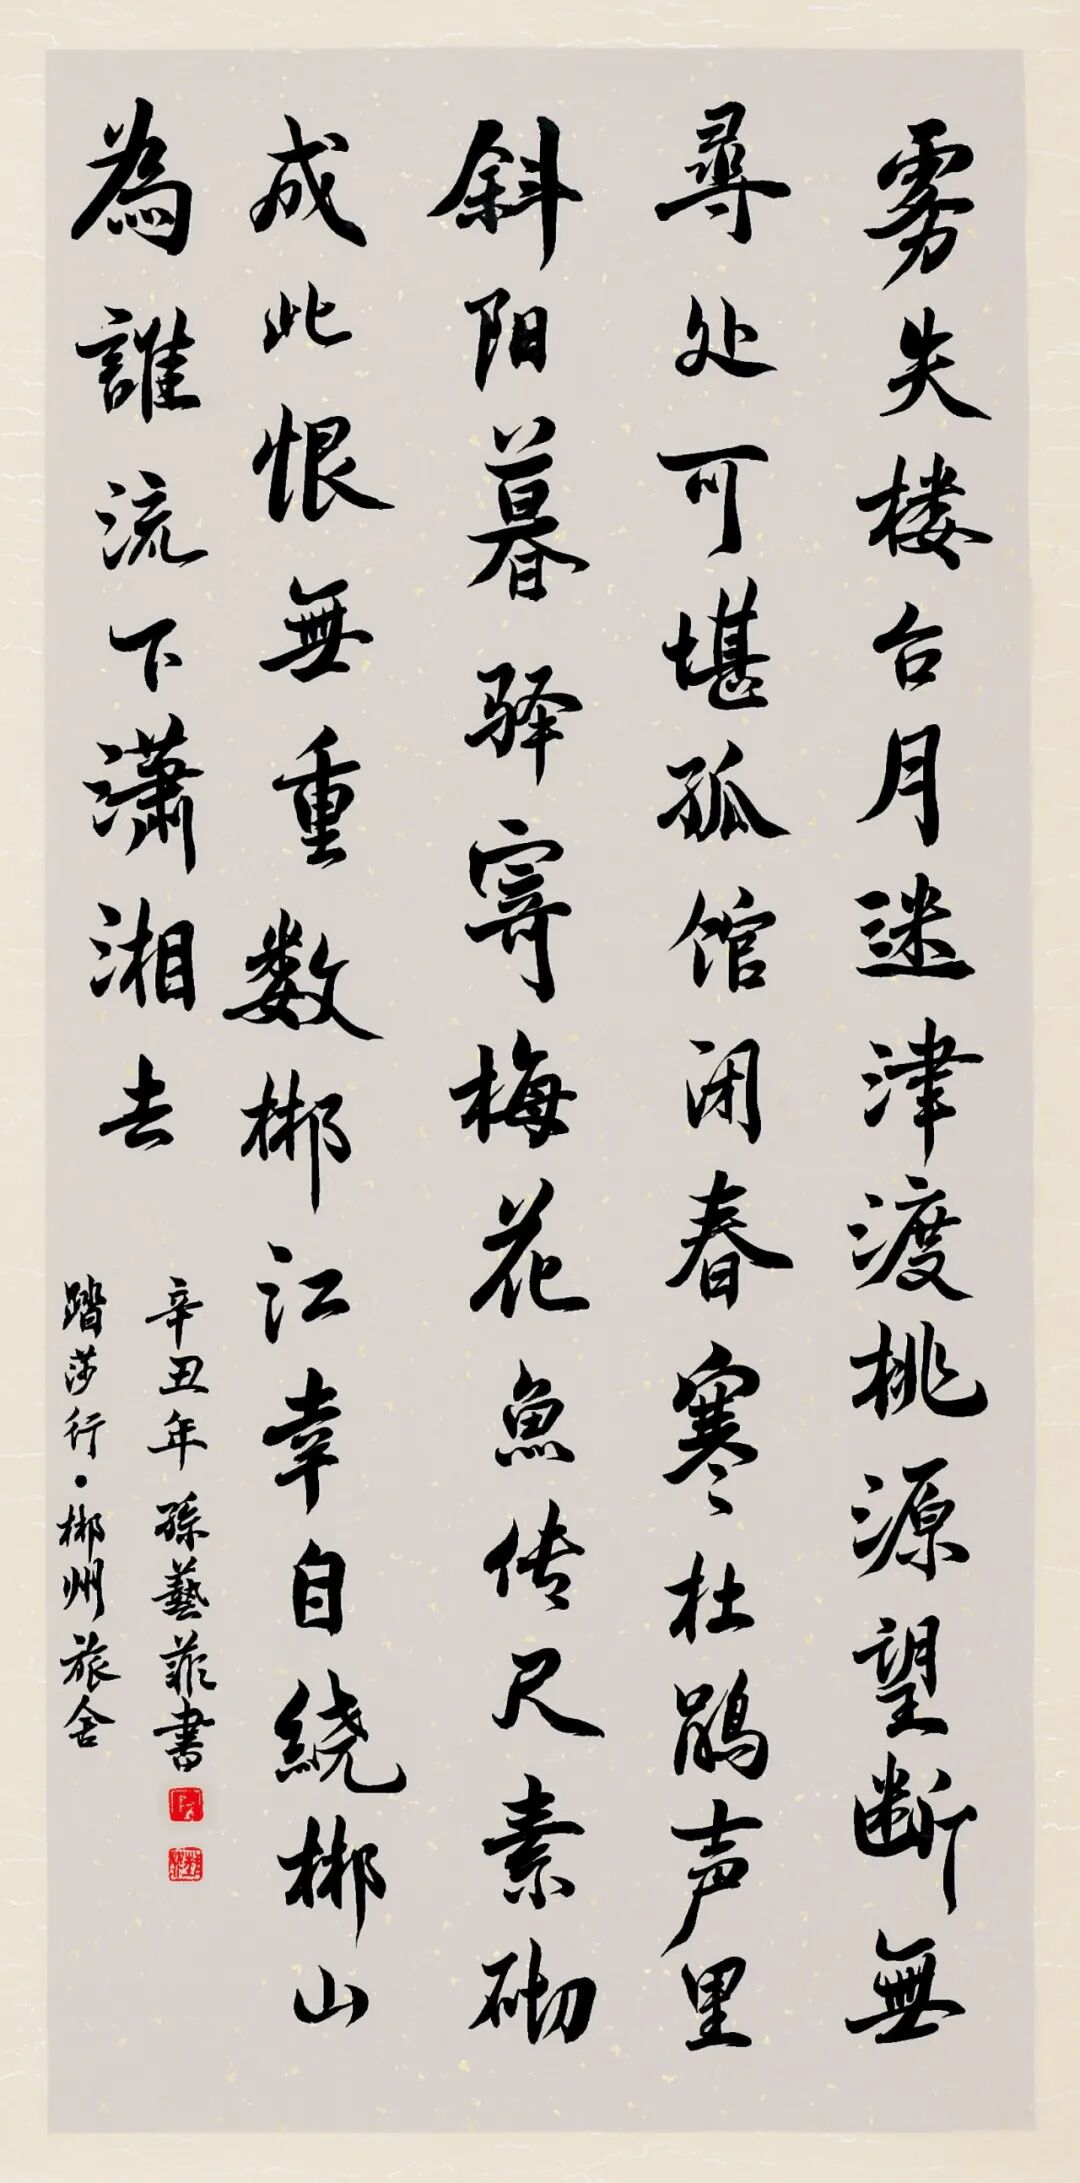 雾失楼台月迷津渡桃源望断無
尋处可堪孤馆闭春寒杜鹃声里
斜阳暮驿寄梅花魚传尺素砌
成此恨無重数郴江幸自绕郴山
為誰流下瀟湘去
辛丑年孫藝菲書
踏莎行·郴州旅舍